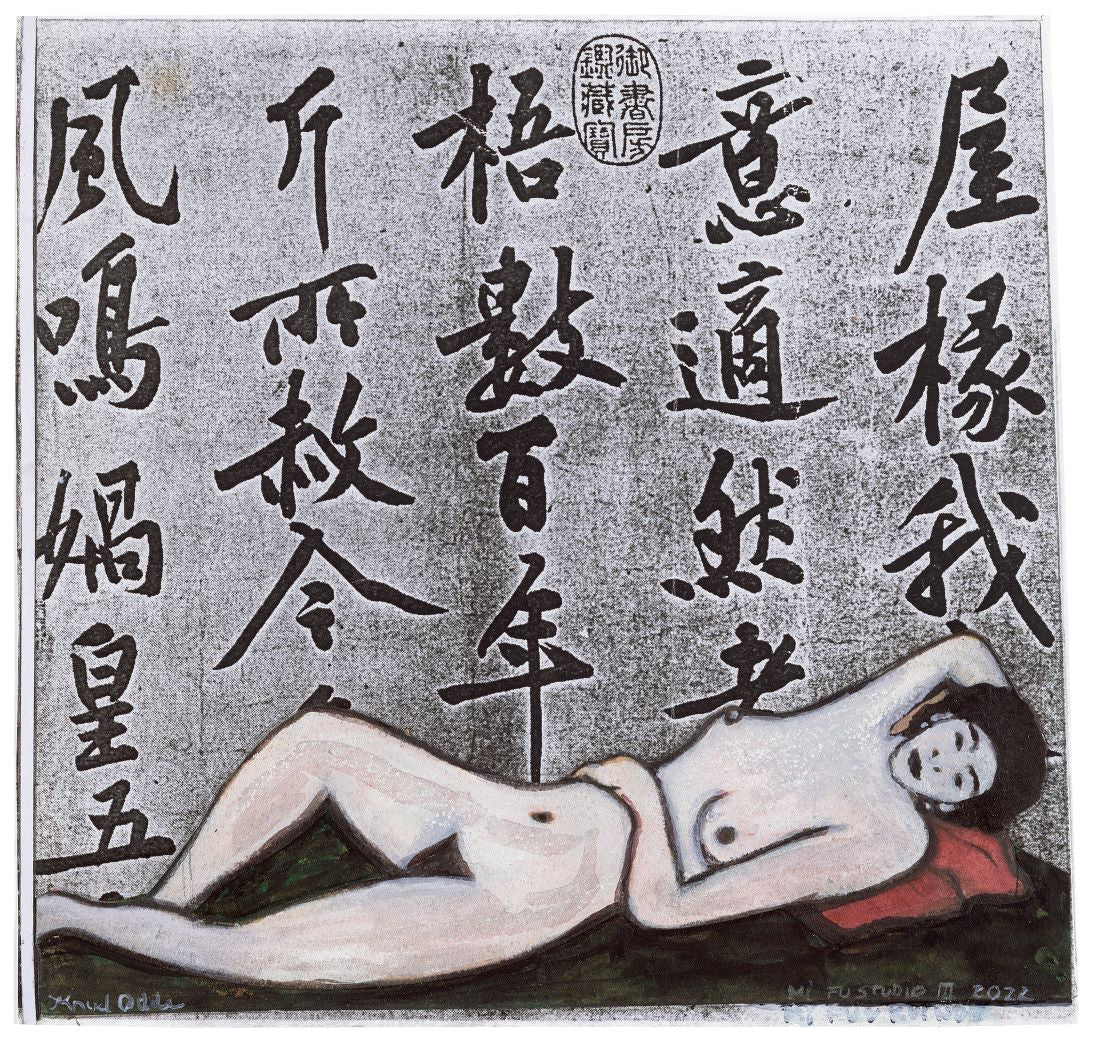 屋椽我
意適然老
梧數百年
斤所赦今
風鳴媧皇五
御書房
鑑藏寶
Knud Odde
Mi FU STUDIO III 2022